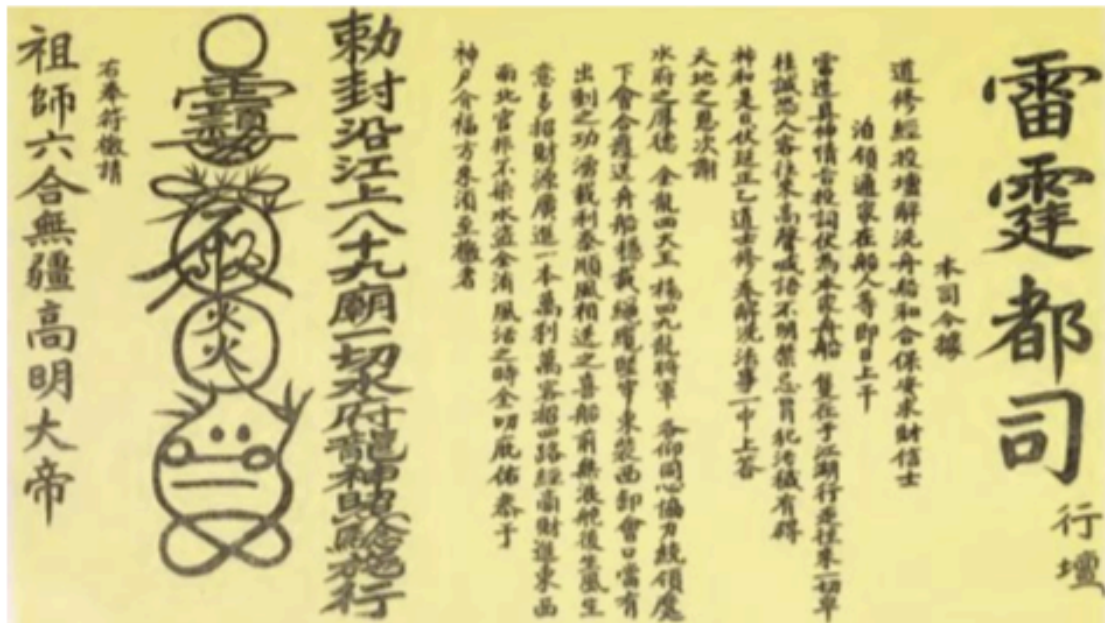 雷霆都司
行壇
本司今據
道修經投壇解洗舟船和合保安求財信士
泊領通家在船人等即日上干
雷造真師情旨投詞伏為本家舟船 隻在于江湖行走往來一切
誠恐人客往來高聲喊語不明禁忌冒犯污穢有碍
神和是日伏延正乙道士修奉解洗法事一中上答
天地之恩次謝
水府之厚德 金龍四大王 楊四九龍將軍 各仰同心協力統領
下會合護送舟船 裝載 繩纜堅牢東裝西卸會口當有
出剝之功 裝載利泰順風相送之喜船前無浪舵後生風生
意多招財源廣進一本萬利萬客招四路經商財進東西
南北官非不染水盜全消風活之時全叨庇佑 于
神戶介福方來須至檄者
敕封沿江上八十九廟一切水府龍神照驗施行
火火
右奉符檄請
祖師六合無疆高明大帝